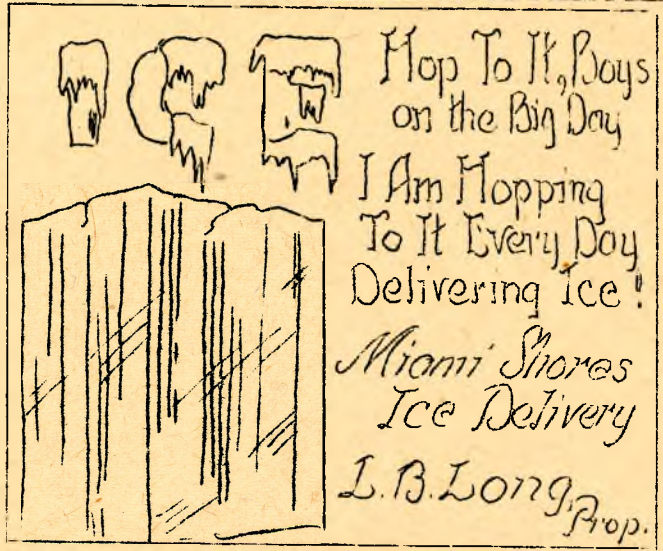 ICE
Hop To It, Boys
on the Big Day
I Am Hopping
To It Every Day
Delivering Ice!
Miami Shores
Ice Delivery
L.B. Long,
Prop.